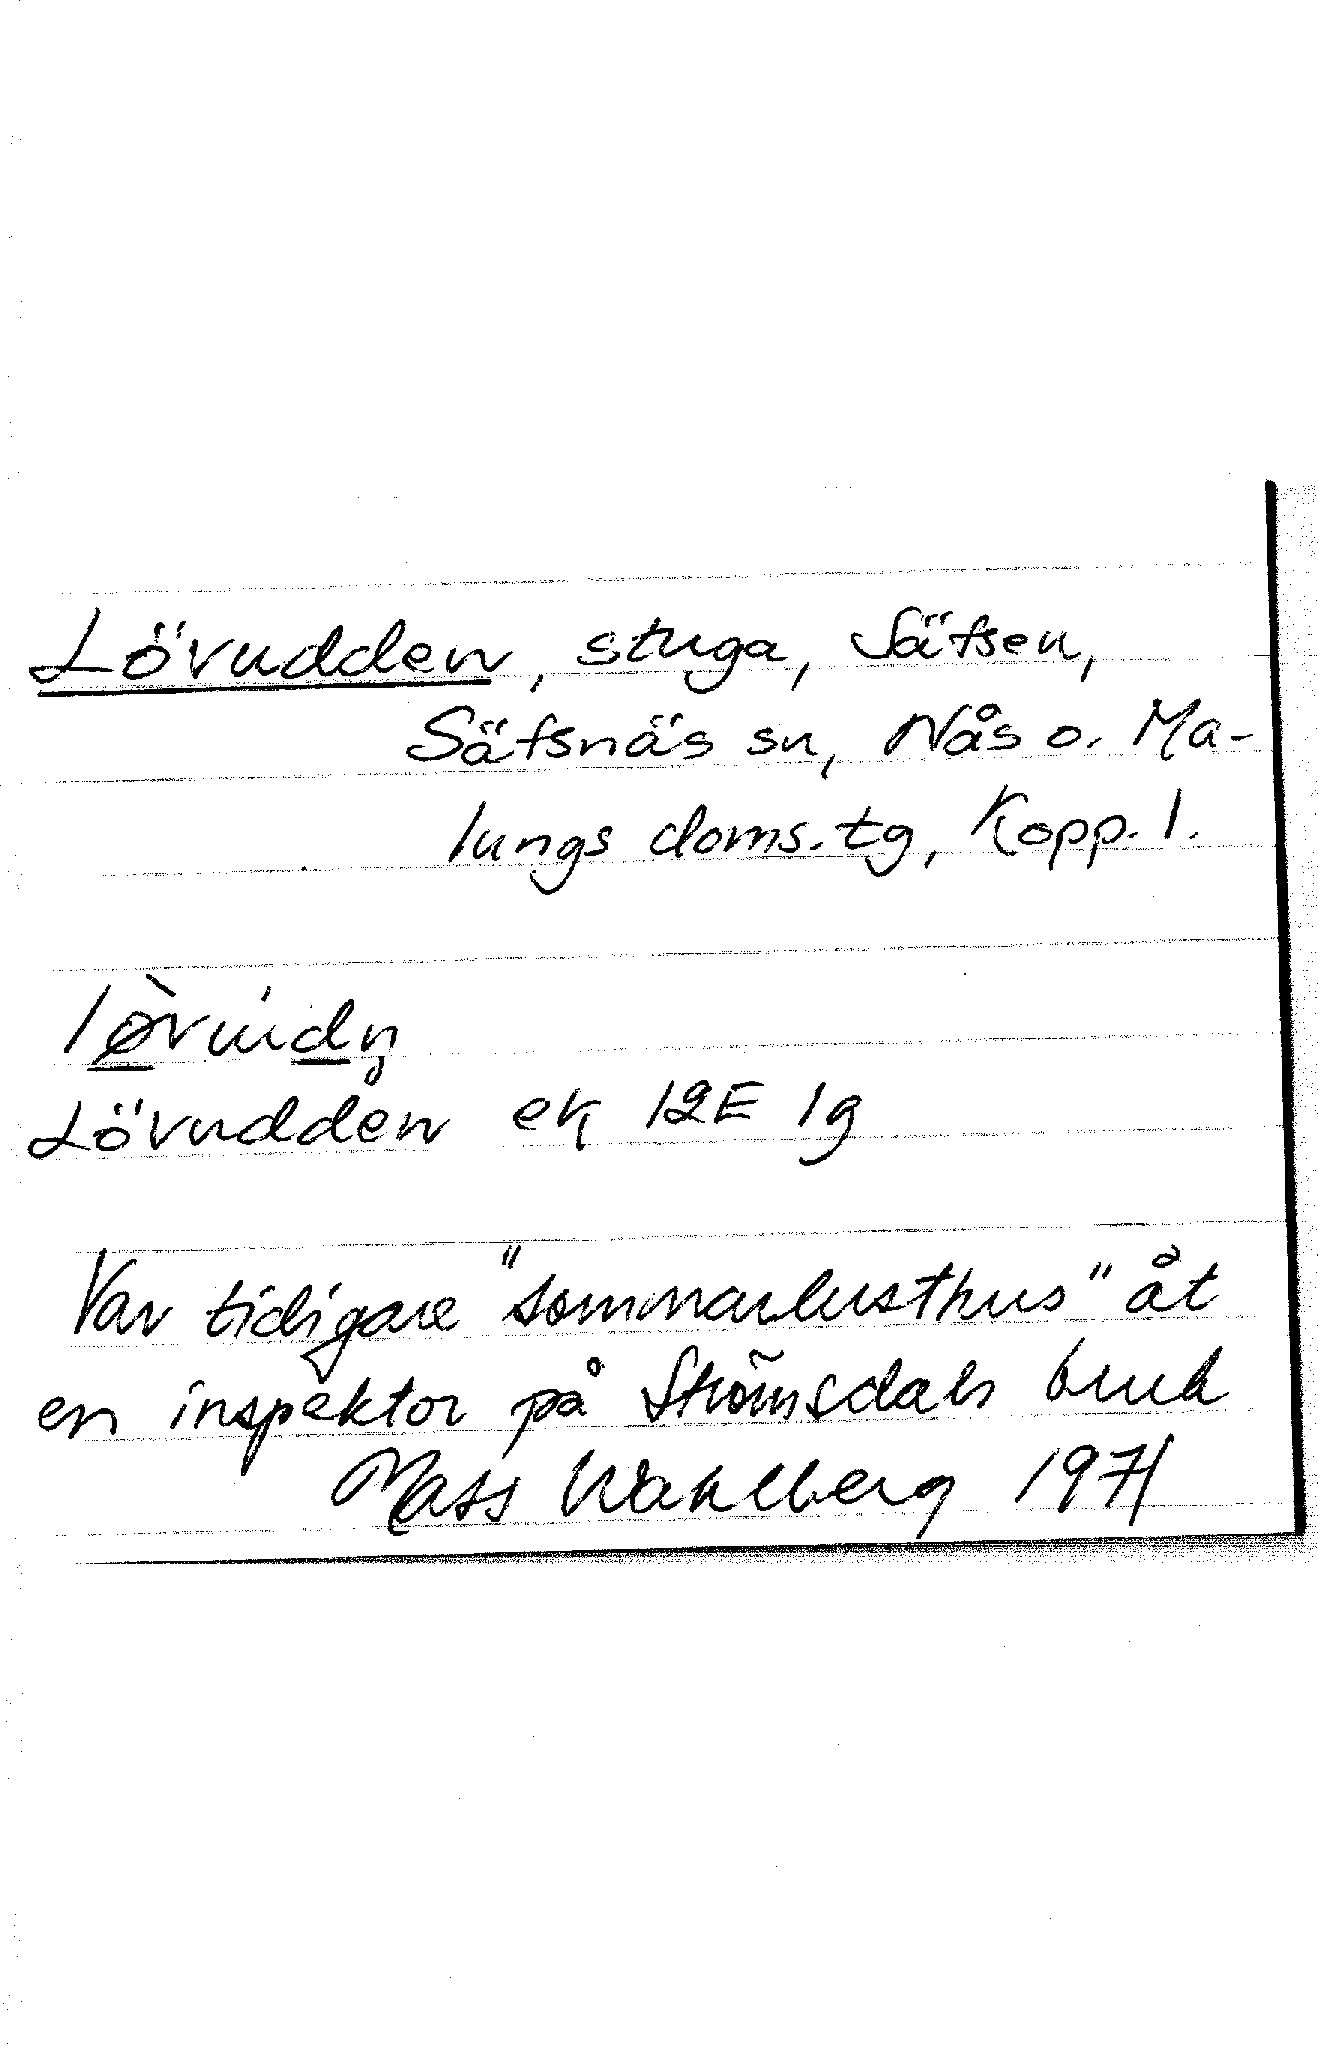 Lövudden, stuga, Säfsen,
Säfsnäs sn, Nås o. Ma-
lungs doms.tg, Kopp. l.
Lövudden ek 12E 1g
Var tidigare "sommarlusthus" åt
en inspektor på Strömsdals bruk
Mats Wahlberg 1971